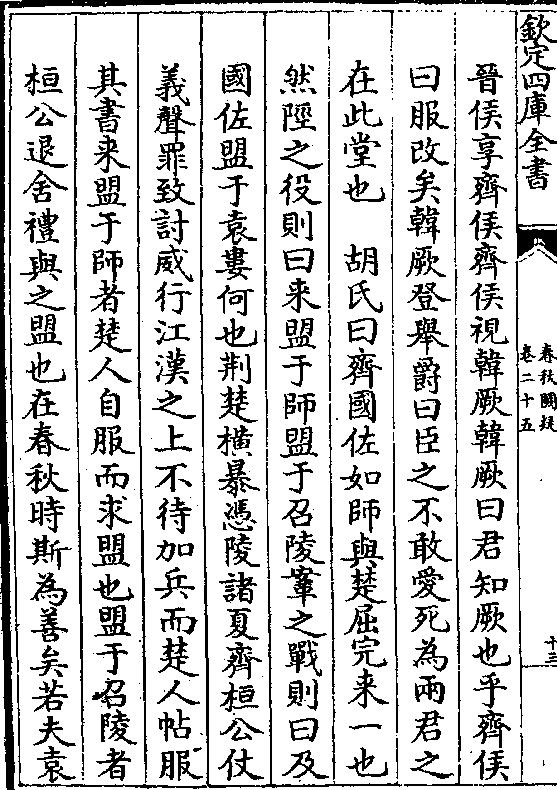 欽定四庫全書
春秋闕疑
卷二十五
十三
晉侯享齊侯齊侯視韓厥韓厥曰君知厥也乎齊侯
曰服改矣韓厥登舉爵曰臣之不敢愛死為兩君之
在此堂也　胡氏曰齊國佐如師與楚屈完来一也
然陘之役則曰来盟于師盟于召陵鞌之戰則曰及
國佐盟于袁婁何也荆楚橫暴憑陵諸夏齊桓公仗
義聲罪致討威行江漢之上不待加兵而楚人帖服
其書来盟于師者楚人自服而求盟也盟于召陵者
桓公退舍禮與之盟也在春秋時斯為善矣若夫袁